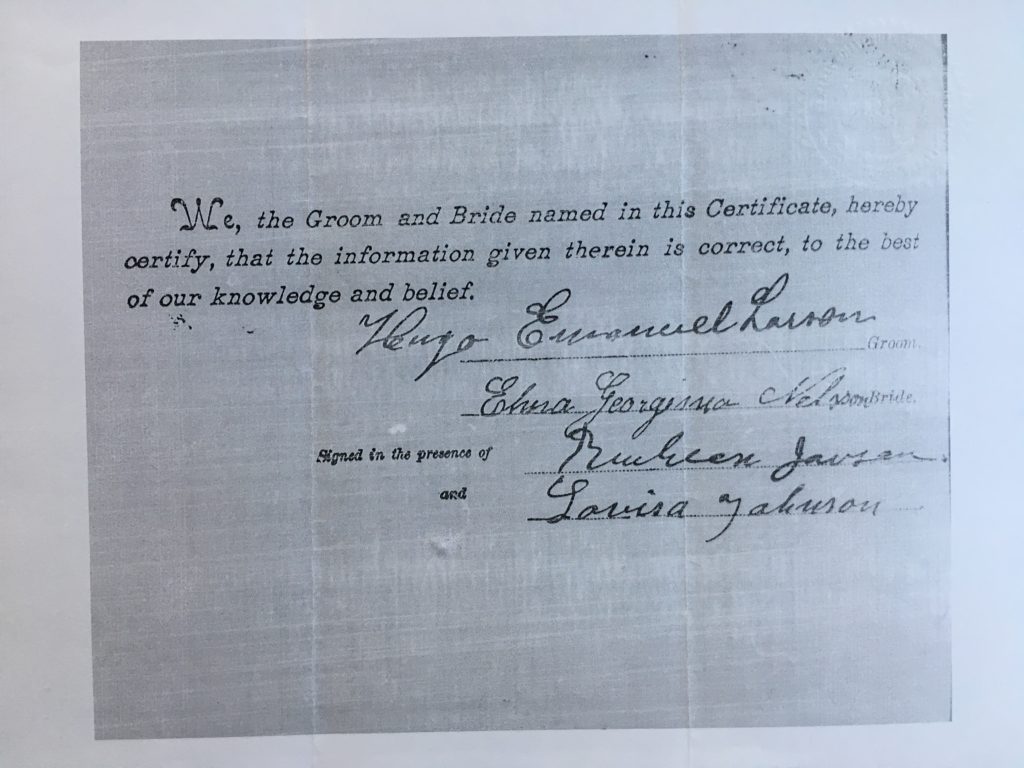 We, the Groom and Bride named in this Certificate, hereby
certify, that the information given therein is correct, to the best
of our knowledge and belief.
Hugo Emanuel Larson Groom.
Georgina Nelson Bride.
Signed in the presence of
and Lovisa Johnson